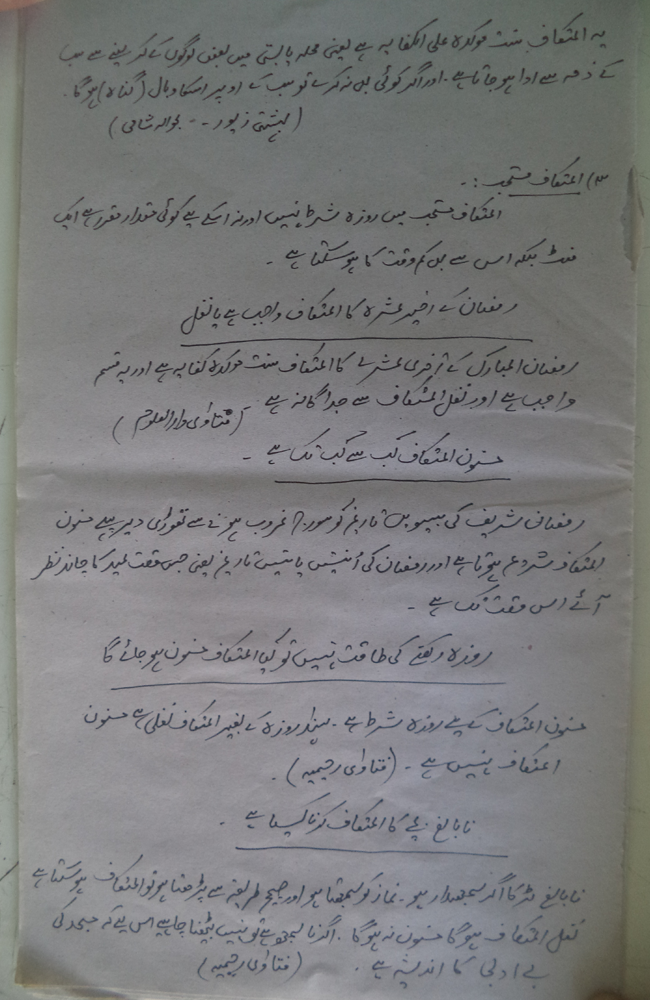 یہ اعتکاف سنت موکدہ علی الکفایہ ہے یعنی محلہ یا بستی میں بعض لوگوں کے کر لینے سے سب
کے ذمہ سے ادا ہو جاتا ہے ۔ اور اگر کوئی بھی نہ کرے تو سب کے اوپر اسکا وبال (گناہ) ہو گا ۔
(بہشتی زیور -- بحوالہ شامی)
۳) اعتکاف مستحب :۔
اعتکاف مستحب میں روزہ شرط نہیں اور نہ اسکے لیے کوئی مقدار مقرر ہے ایک
منٹ بلکہ اس سے بھی کم وقت کا ہو سکتا ہے ۔
رمضان کے اخیر عشرہ کا اعتکاف واجب ہے یا نفل
رمضان المبارک کے آخری عشرے کا اعتکاف سنت موکدہ کفایہ ہے اور یہ قسم
واجب ہے اور نفل اعتکاف سے جداگانہ ہے
(فتاوٰی دارالعلوم)
مسنون اعتکاف کب سے کب تک ہے ۔
رمضان شریف کی بیسویں تاریخ کو سورج غروب ہونے سے تھوڑی دیر پہلے مسنون
اعتکاف شروع ہوتا ہے اور رمضان کی اُنتیس یا تیس تاریخ یعنی جس وقت عید کا چاند نظر
آئے اس وقت تک ہے ۔
روزہ رکھنے کی طاقت نہیں تو کیا اعتکاف مسنون ہو جائے گا
مسنون اعتکاف کے لیے روزہ شرط ہے ۔ لہٰذا روزہ کے بغیر اعتکاف نفلی ہے مسنون
اعتکاف نہیں ہے ۔ (فتاوٰی رحیمیہ) ۔
نابالغ بچے کا اعتکاف کرنا کیسا ہے ۔
نابالغ لڑکا اگر سمجھدار ہو ۔ نماز کو سمجھتا ہو اور صحیح طریقہ سے پڑھتا ہو تو اعتکاف ہو سکتا ہے
نفل اعتکاف ہو گا مسنون نہ ہو گا ۔ اگر نا سمجھ ہے تو نہیں بیٹھنا چاہیے اس لیے کہ مسجد کی
بے ادبی کا اندیشہ ہے ۔ (فتاوٰی رحیمیہ)